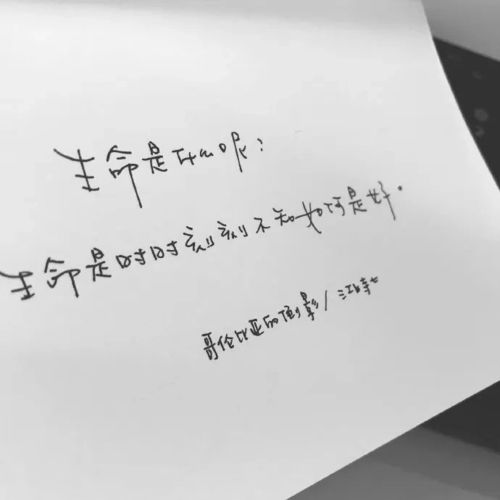 生命是什么呢？
生命是时时刻刻不知如何是好。
哥伦比亚的倒影 /